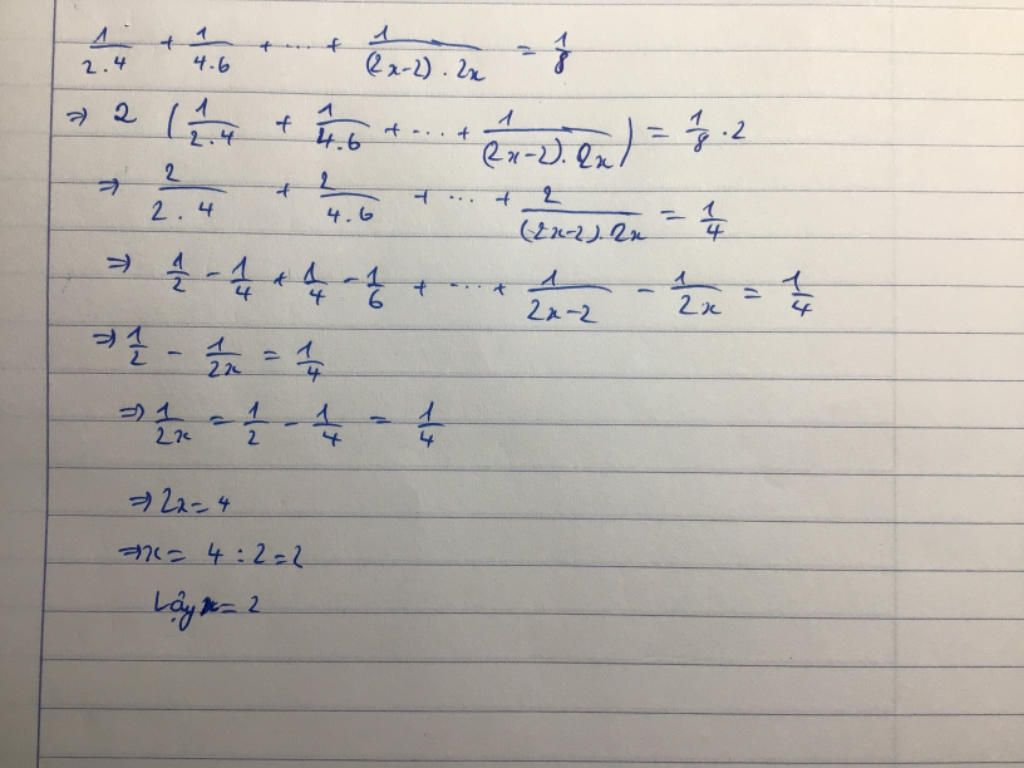 1/2.4 + 1/4.6 + ... + 1/(2x-2).2x = 1/8
⇒ 2 (1/2.4 + 1/4.6 + ... + 1/(2x-2).2x) = 1/8 . 2
⇒ 2/2.4 + 2/4.6 + ... + 2/(2x-2).2x = 1/4
⇒ 1/2 - 1/4 + 1/4 - 1/6 + ... + 1/2x-2 - 1/2x = 1/4
⇒ 1/2 - 1/2x = 1/4
⇒ 1/2x = 1/2 - 1/4 = 1/4
⇒ 2x = 4
⇒ x = 4 : 2 = 2
Vậy x = 2